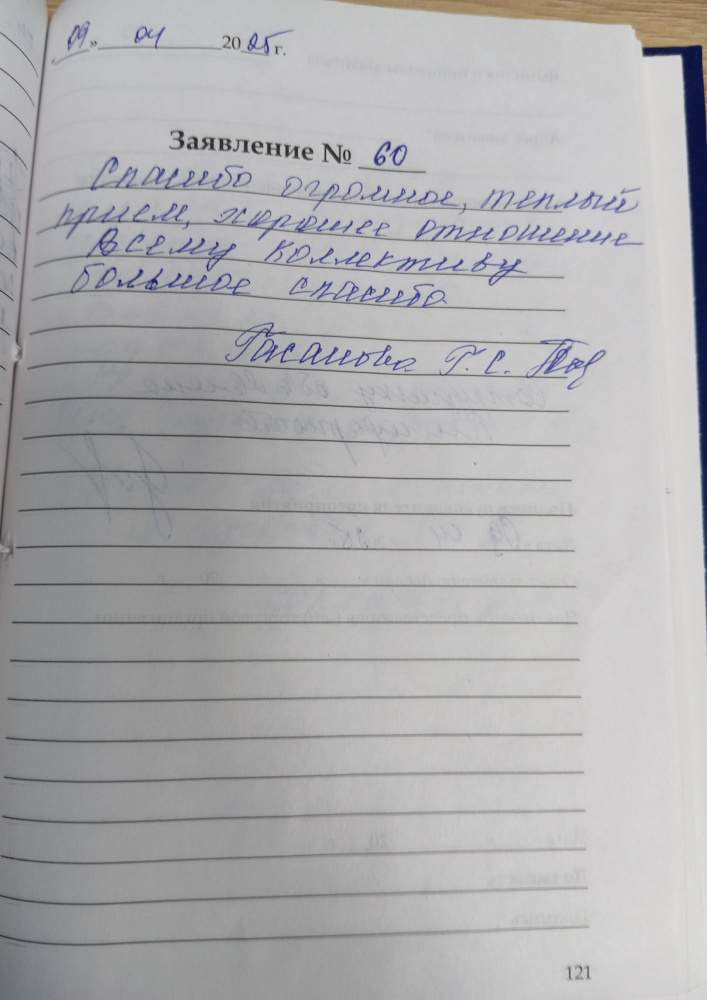 09» 04 2025 г.
Заявление № 60
Спасибо огромное, теплый
прием, хорошее отношение
Всему коллективу
большое спасибо
Гасанова Г. С.
121